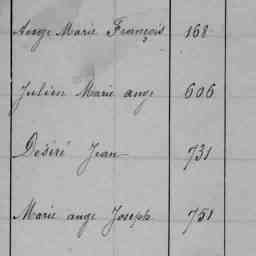 Ange Marie François 168
Julien Marie ange 606
Désiré Jean 731
Marie ange Joseph 751